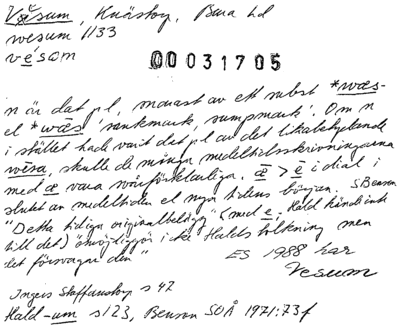 Vesum, Knästorp, Bara hd
wesum 1133
vésom
00031705
n är dat pl, snarast av ett subst *wæs-
el *wās 'sankmark, sumpmark'. Om n
i stället hade varit dat pl av det likabetydande
wēsa, skulle de många medeltidsskrivningarna
med æ vara svårförklarliga. æ > e i dial i
slutet av medeltiden el nya tidens början. S Benson
"Detta tidiga originalbelägg" (med e, Hald kände inte
till det) "omöjliggör icke Halds tolkning men
det försvagar den"
ES 1988 har
Vesum
Ingers Staffanstorp s 42
Hald -um s 123, Benson SOÅ 1971:73 f